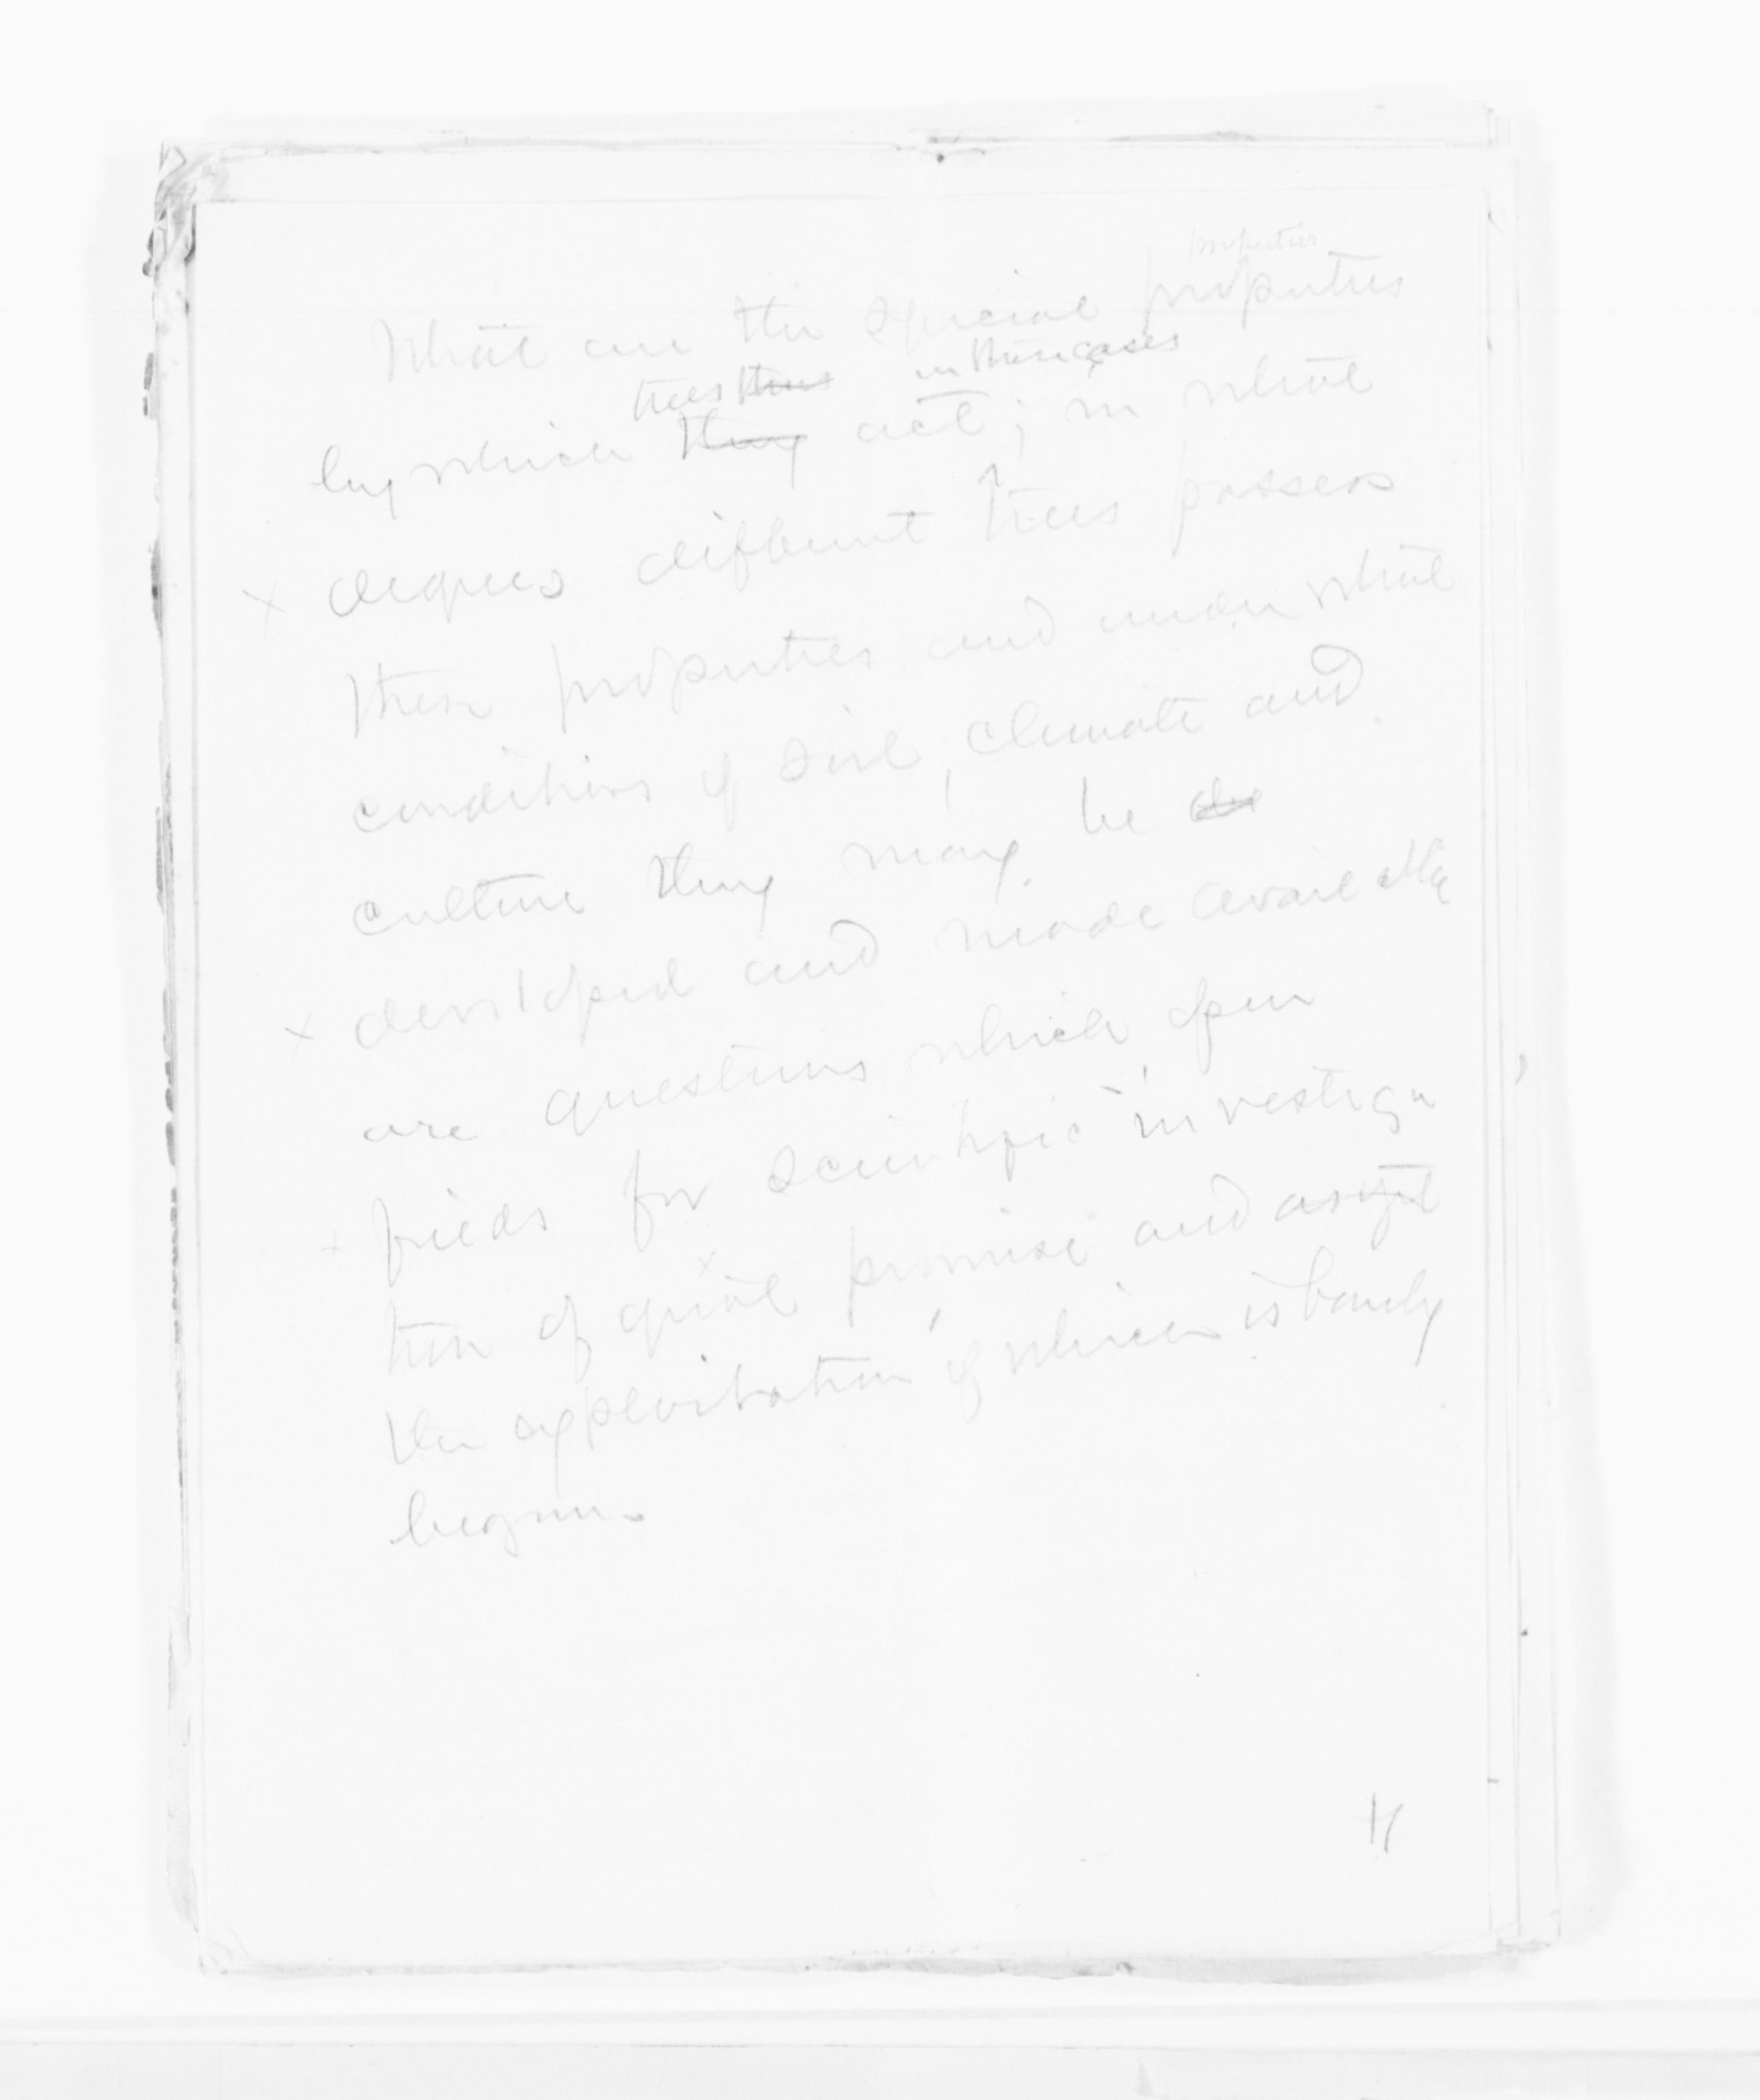 properties
What are the special properties
trees thus in these cases
by which they act; in what
degrees different trees possess
these properties and under what
conditions of soil, climate and
culture they may be de
developed and made available
are questions which open
fields for scientific investiga
tion of great promise and as yet
the exploitation of which is barely
begun.